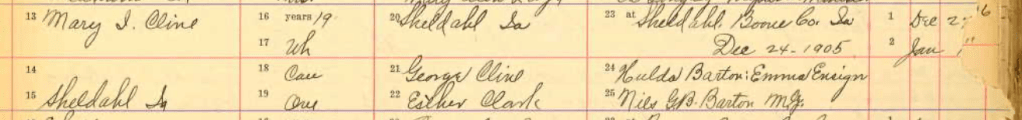 13 Mary I. Cline 16 years 19 20 Sheldahl Ia 23 at Sheldahl. Boone Co. Ia 1 Dec 2
17 Wh Dec 24-1905 2 Jan
14 18 Cau 21 George Cline 24 Hulda Barton: Emma Ensign
15 Sheldahl Ia 19 One 22 Esther Clark 25 Niels G.B. Barton M.G.